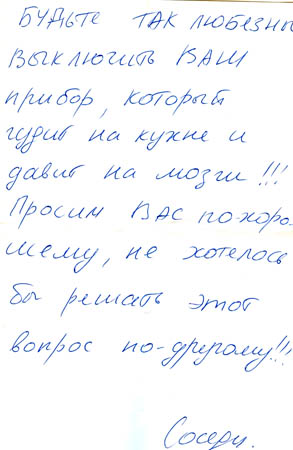 БУДЬТЕ ТАК ЛЮБЕЗНЫ
ВЫКЛЮЧИТЬ ВАШ
прибор, который
гудит на кухне и
давит на мозги!!!
Просим ВАС по-хоро-
шему, не хотелось
бы решать этот
вопрос по-другому!!!
Соседи.